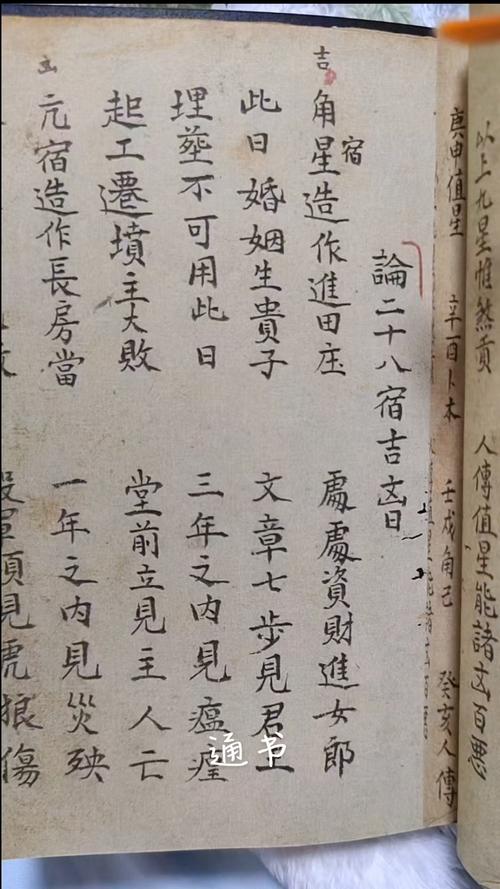 以上九星惟煞貢 人傳值星能諸㐫百惡
庚申值星 辛酉卜木 壬戌角己 癸亥人傳
論二十八宿吉㐫日
吉
角星宿造作進田庄 處處資財進女郎
此日婚姻生貴子 文章七步見君王
埋塟不可用此日 三年之內見瘟
起工遷墳主大敗 堂前立見主人亡
㐫
亢宿造作長房當 一年之內見災殃
見虎狼傷
通书